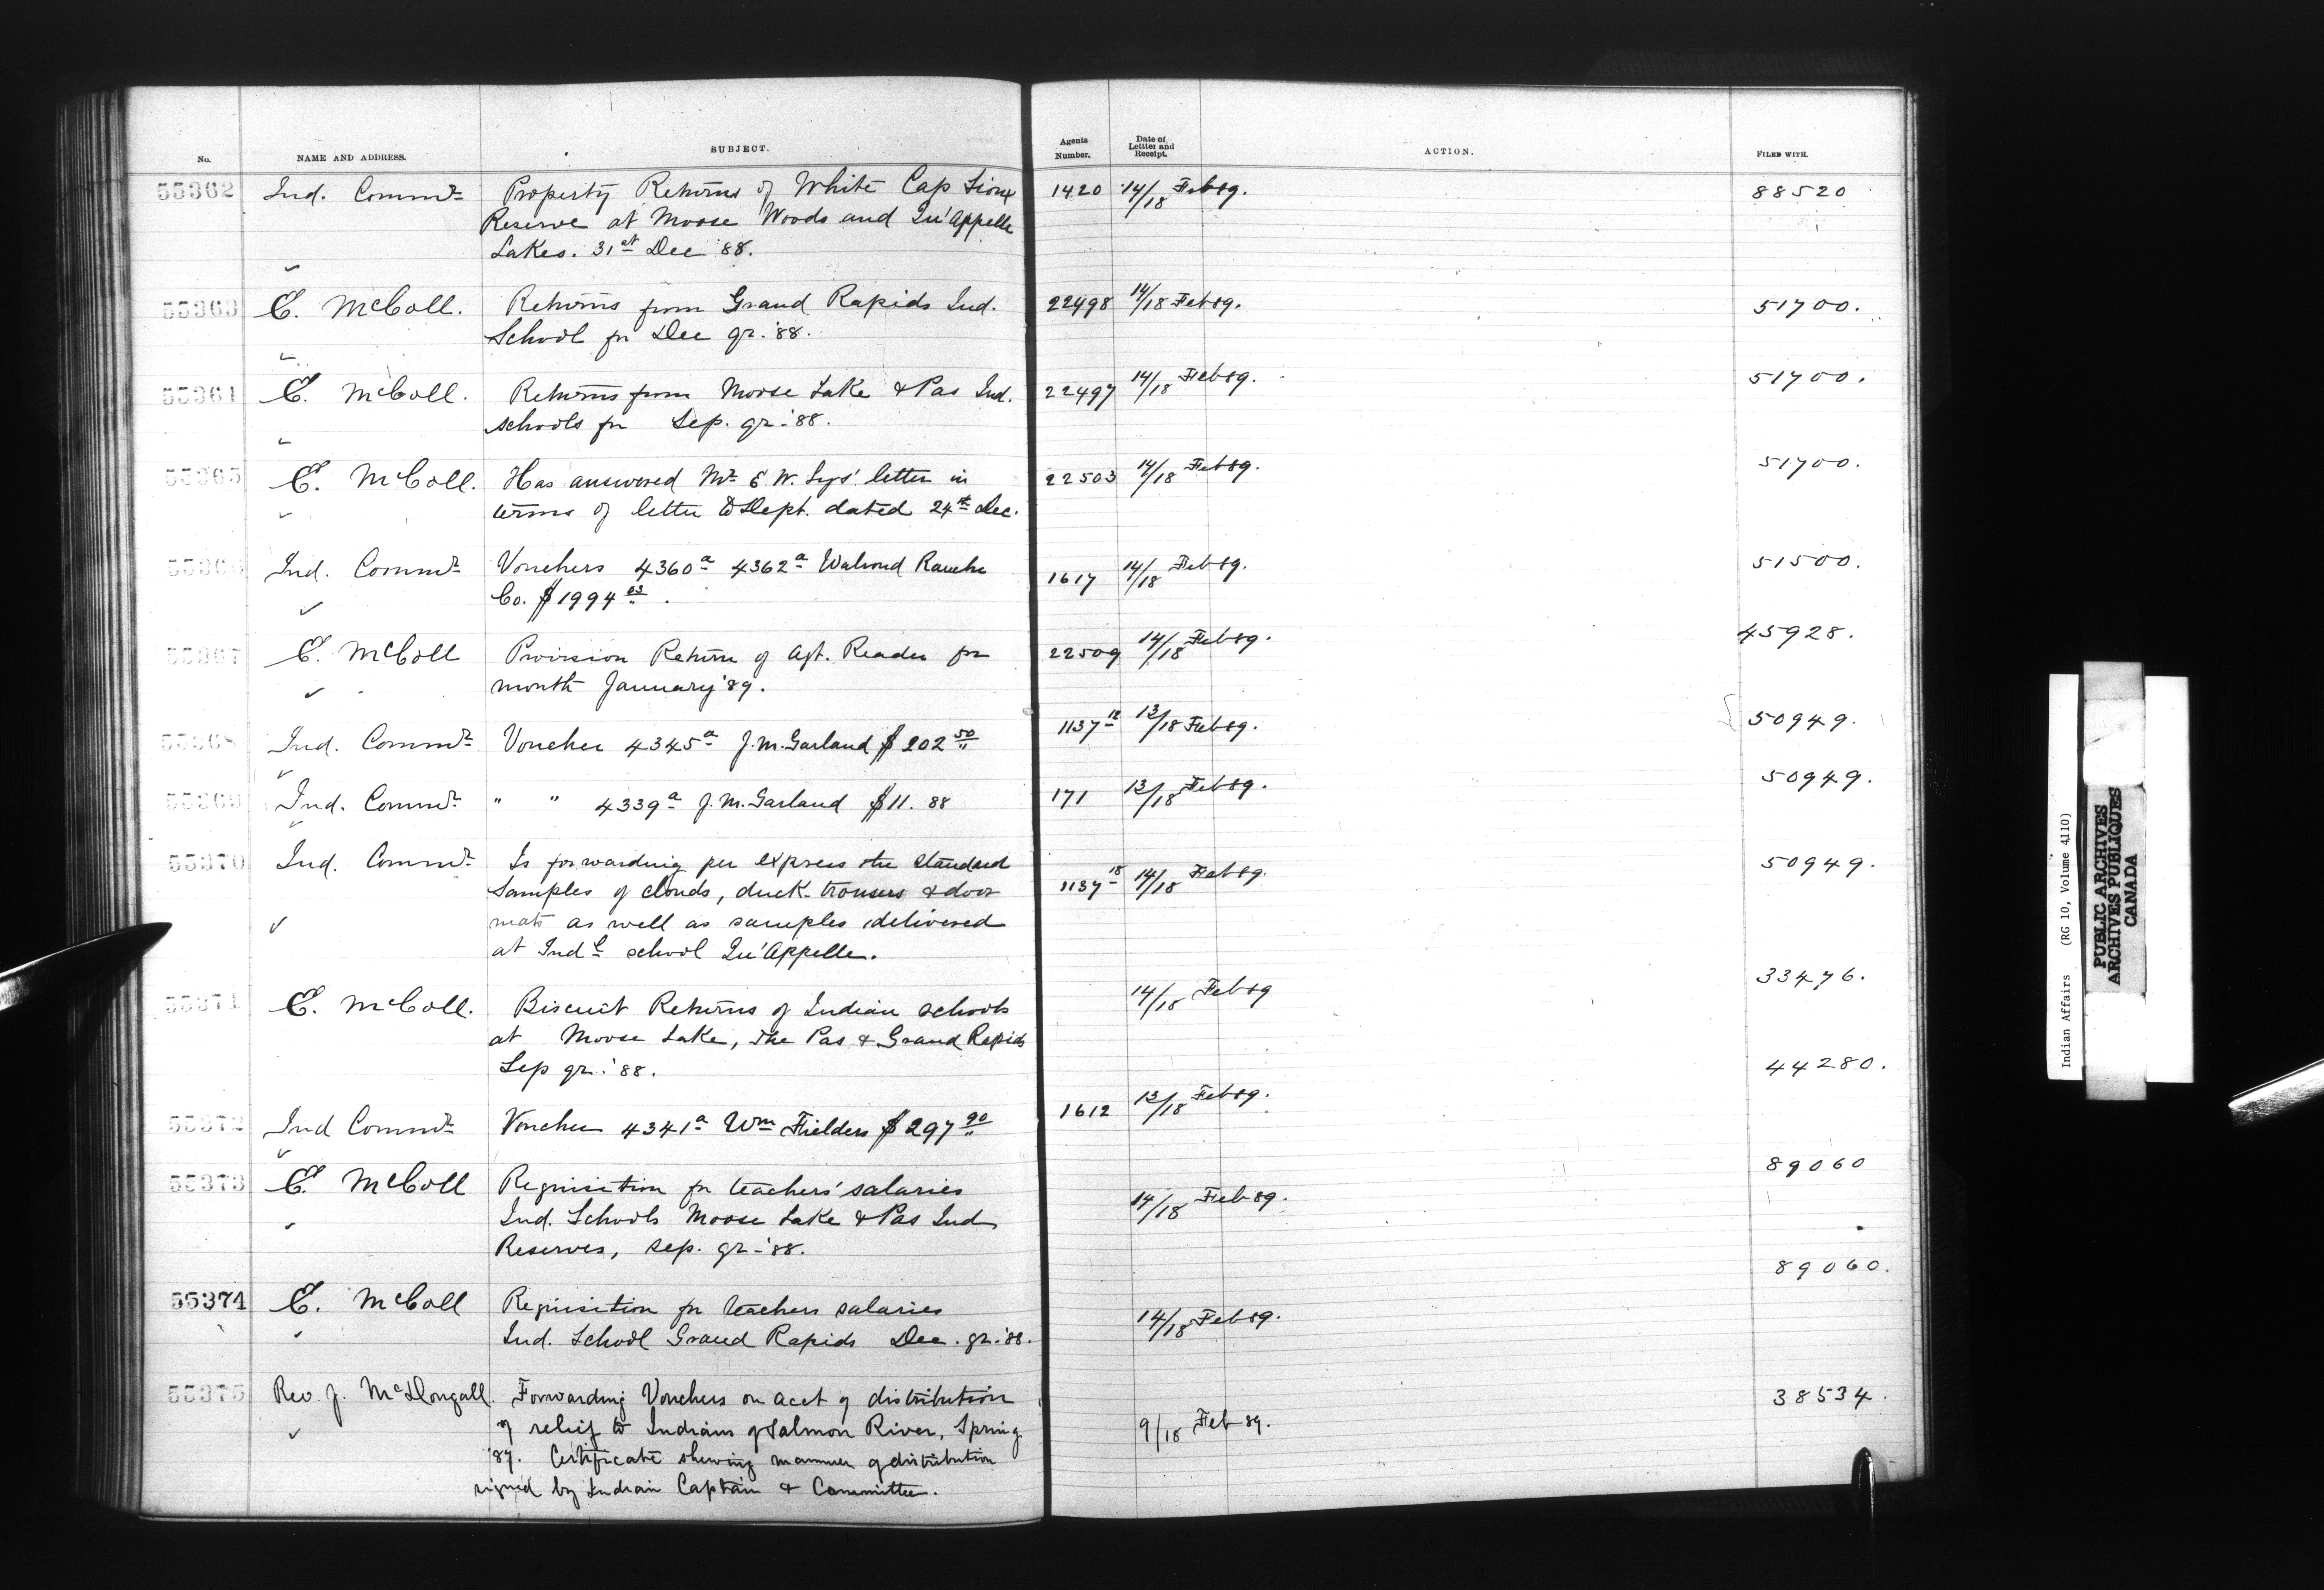 No.
NAME AND ADDRESS.
SUBJECT.
Agents Number.
Date of Lettter and Receipt.
ACTION.
FILED WITH.
55362 Ind. Commr Property Returns of White Cap Sioux 1420 14/18 Feb 89. 88520
Reserve at Moose Woods and Qu'Appelle
Lakes. 31st Dec '88.
55363 E. McColl. Returns from Grand Rapids Ind. 22498 14/18 Feb 89. 51700.
School for Dec qr. '88.
55364 E. McColl. Returns from Moose Lake & Pas Ind. 22497 14/18 Feb 89. 51700.
schools for Sep. qr. '88.
55365 E. McColl. Has answered Mr E W. letter in 22503 14/18 Feb 89. 51700.
terms of letter to Dept. dated 24th Dec.
55366 Ind. Commr Vouchers 4360a 4362a Walrond Ranche 1617 14/18 Feb 89. 51500.
Co. $1994 03.
55367 E. McColl Provision Return of Agt. Reader for 22509 14/18 Feb 89. 45928.
month January '89.
55368 Ind. Commr Voucher 4345a J.M. Garland $202 50 1137 12 13/18 Feb 89. 50949.
55369 Ind. Commr " " 4339a J.M. Garland $11.88 171 13/18 Feb 89. 50949.
55370 Ind. Commr Is forwarding per express the standard 1137 18 14/18 Feb 89. 50949.
samples of clouds, duck trousers & door
mats as well as samples delivered
at Indl school Qu'Appelle.
55371 E. McColl. Biscuit Returns of Indian schools 14/18 Feb 89 33476.
at Moose Lake, The Pas & Grand Rapids
Sep qr. '88.
55372 Ind Commr Voucher 4341a Wm Fielders $297 90 1612 13/18 Feb 89. 44280.
55373 E. McColl Requisition for teachers' salaries 14/18 Feb 89. 89060
Ind. Schools Moose Lake & Pas Ind
Reserves, Sep. qr - '88.
55374 E. McColl Requisition for teachers salaries 14/18 Feb 89. 89060.
Ind. School Grand Rapids Dec. qr. '88.
55375 Rev. J. McDougall. Forwarding Vouchers on acct of distribution 9/18 Feb 89. 38534.
of relief to Indians of Salmon River, Spring
'87. Certificate shewing manner of distribution
signed by Indian Captain & Committee.
Indian Affairs (RG 10, Volume 4110)
PUBLIC ARCHIVES
ARCHIVES PUBLIQUES
CANADA